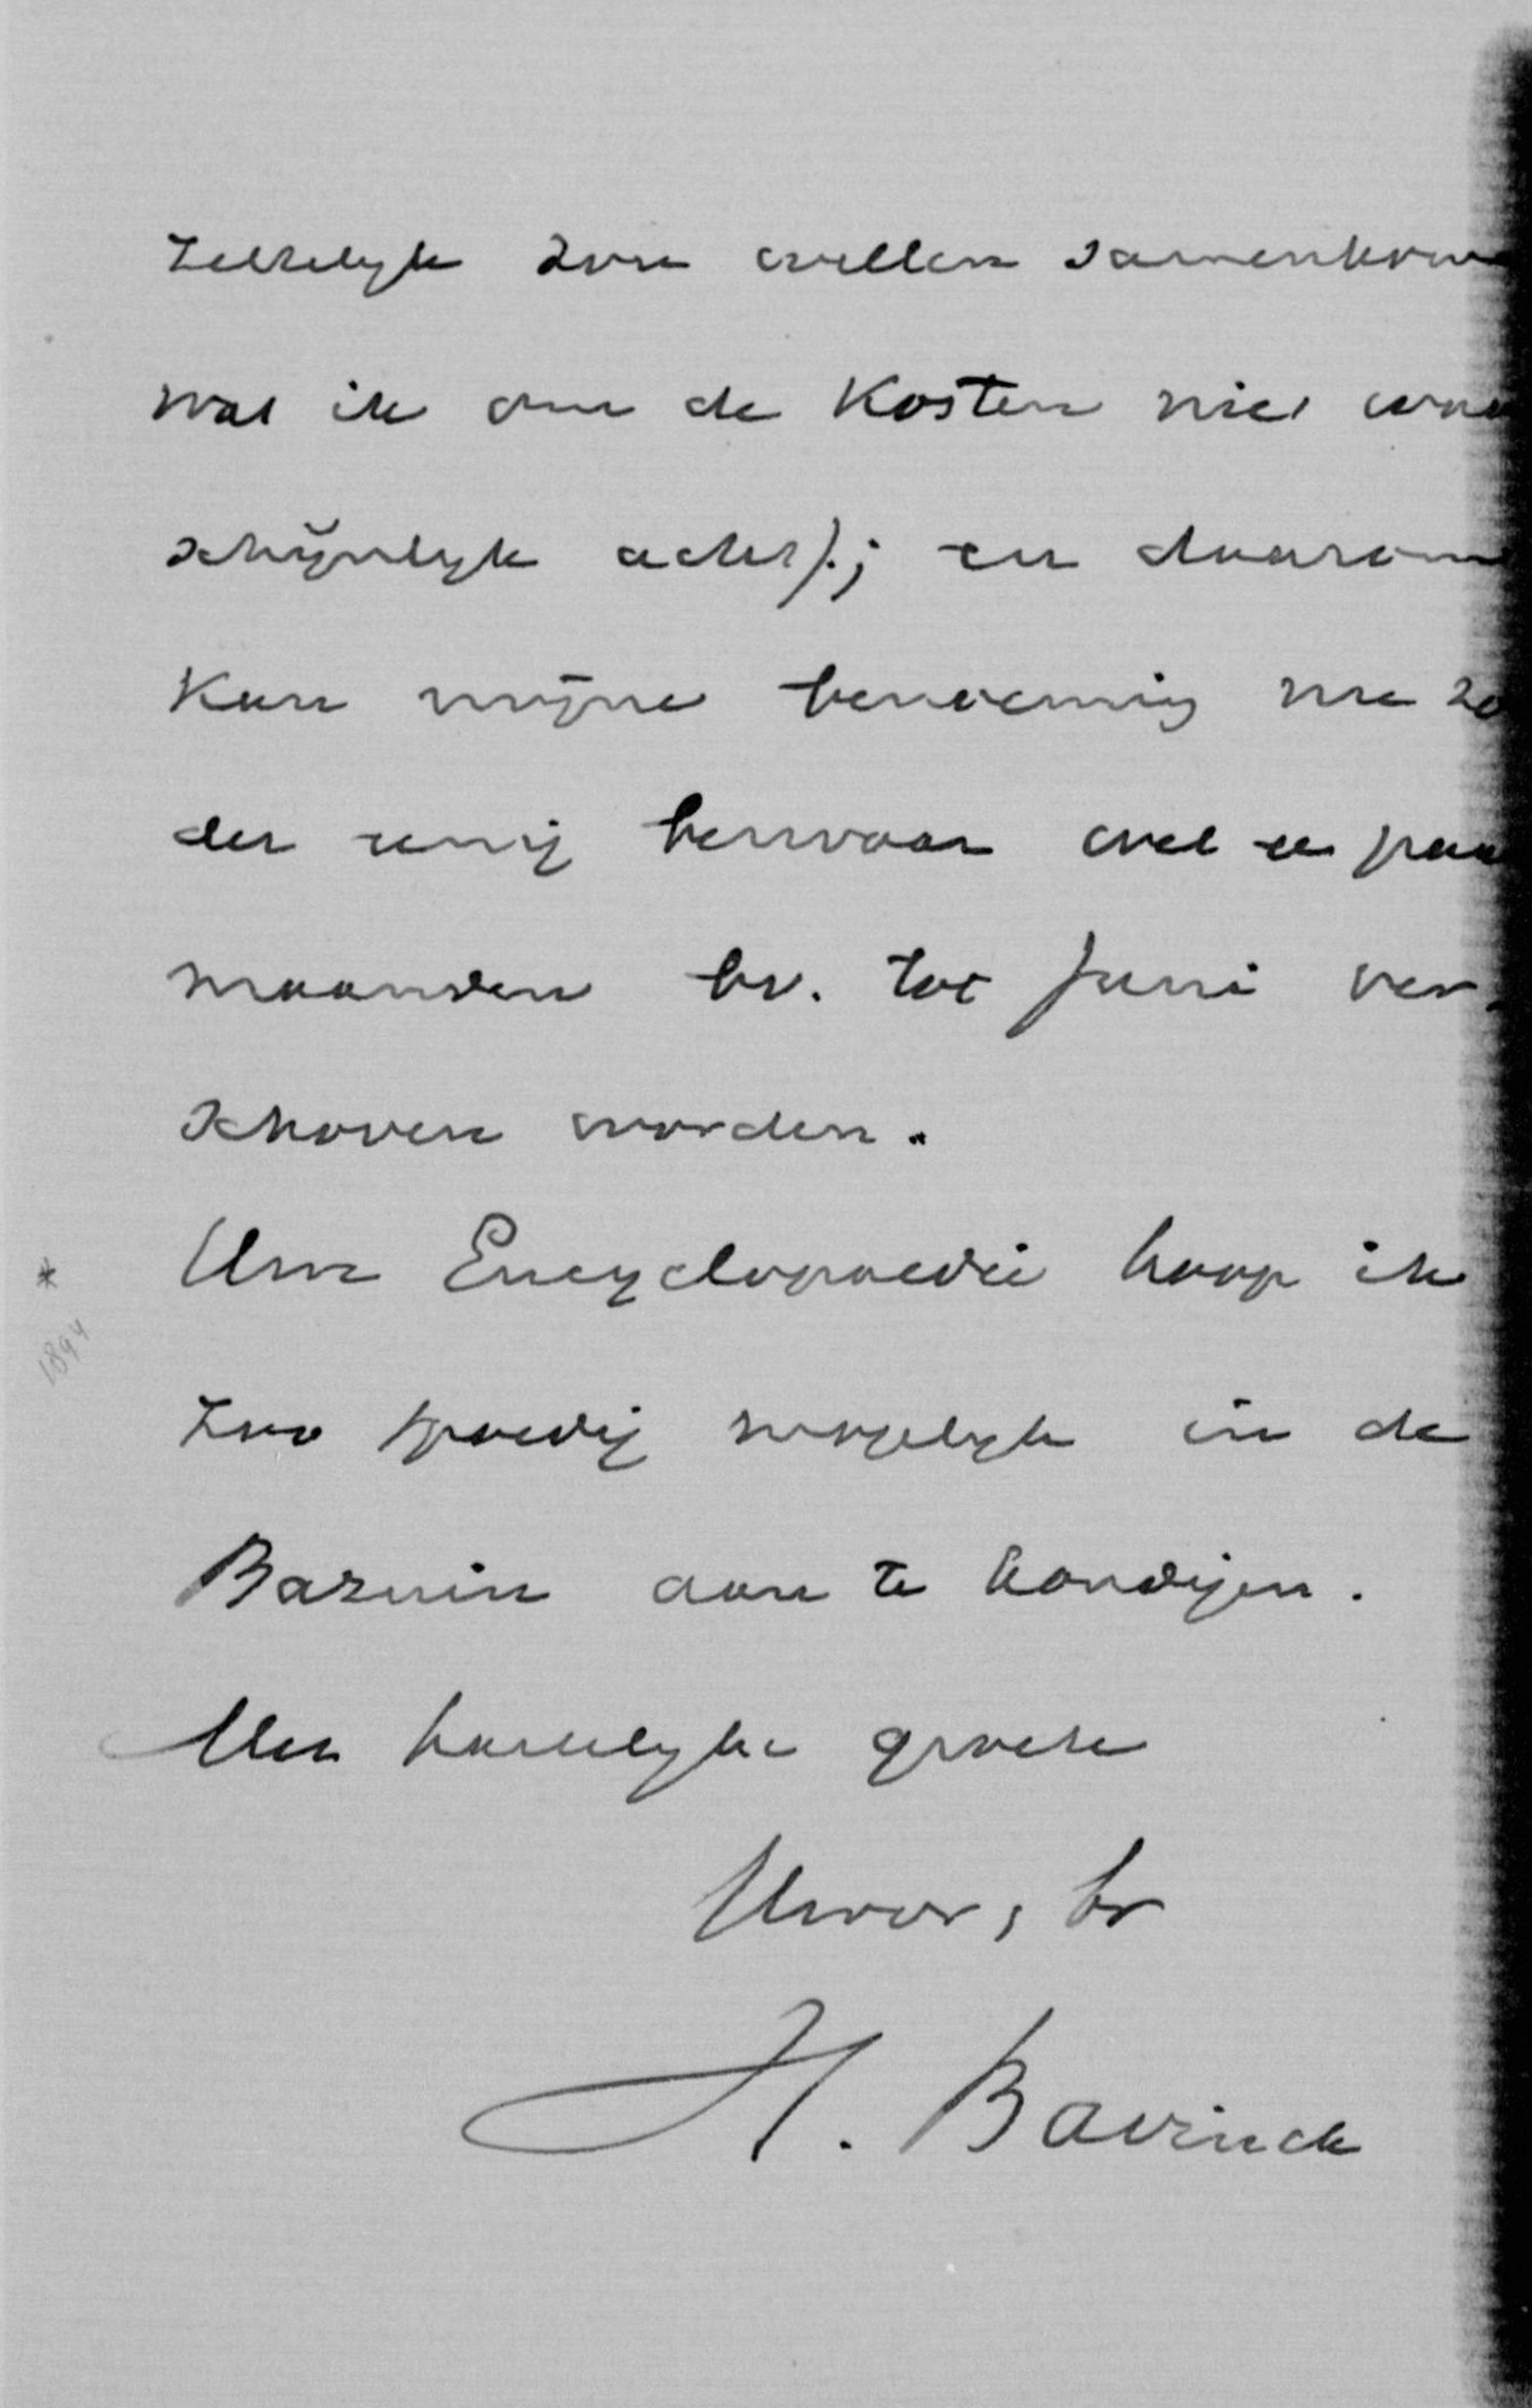 zettelijk zou willen samenkom
wat ik om de Kosten niet waar
schijnlijk acht).; en daarom
Kan mijne benoeming nu zo
der eenig bezwaar wel een paar
maanden bv. tot Juni ver-
schoven worden.
* Uwe Encyclopaedie hoop ik
1894
zoo spoedig mogelijk in de
Bazuin aan te kondigen.
Met hartelijke groete
Uwer, br
H. Bavinck